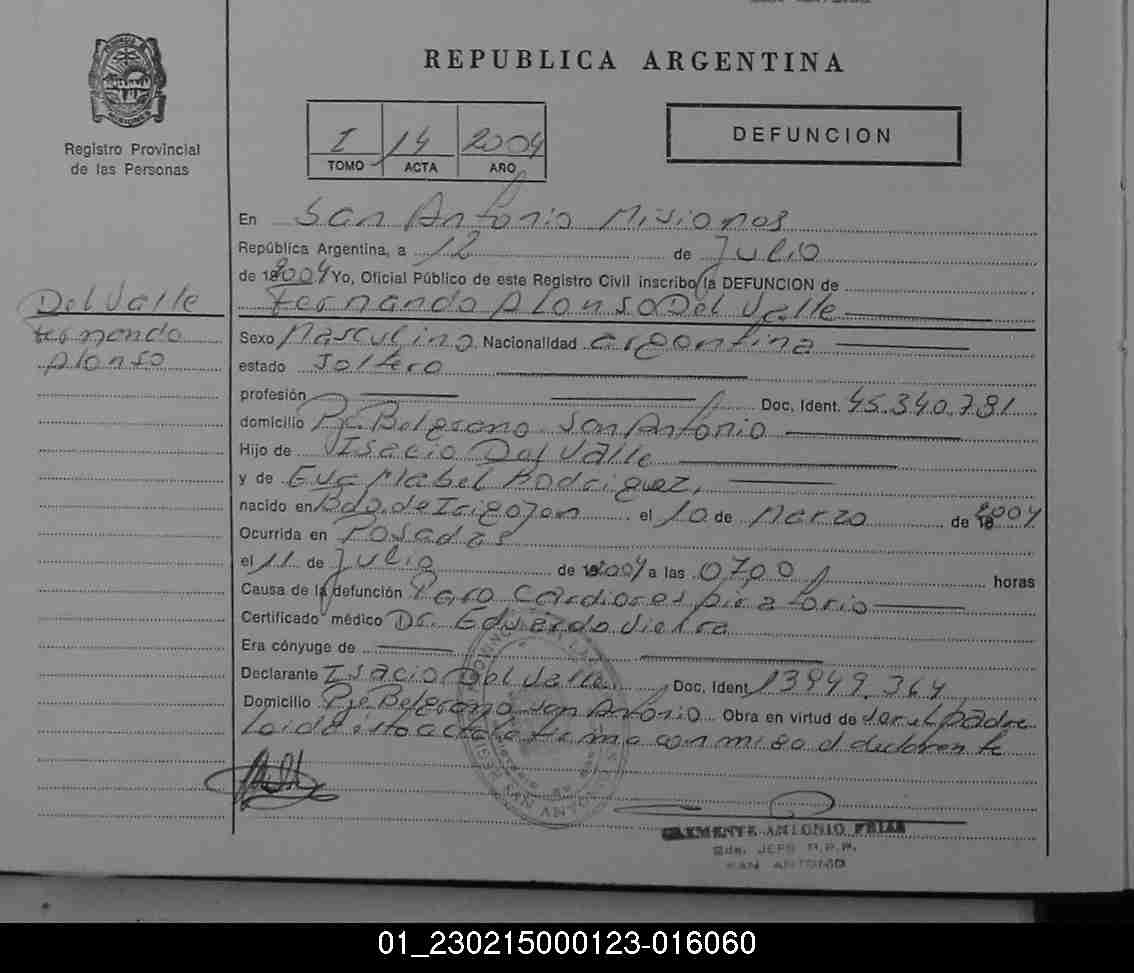 REPUBLICA ARGENTINA
Registro Provincial
de las Personas
I 14 2004
TOMO ACTA AÑO
DEFUNCION
En San Antonio Misiones
República Argentina, a 12 de Julio
de 182004 Yo, Oficial Público de este Registro Civil inscribo la DEFUNCION de
Fernando Alonso Del Valle
Del Valle
Fernando
Alonso
Sexo Masculino Nacionalidad argentina
estado Soltero
profesión Doc. Ident. 45.340.781
domicilio Pje Belgrano San Antonio
Hijo de Isacio Del Valle
y de Eva Mabel Rodriguez,
nacido en Bdo. de Irigoyen el 10 de Marzo de 18 2004
Ocurrida en Posadas
el 11 de Julio de 182004 a las 0700 horas
Causa de la defunción Paro Cardiorespiratorio
Certificado médico Dr. Eduardo Vieira
Era cónyuge de
Declarante Isacio Del Valle Doc. Ident 13949.364
Domicilio Pje Belgrano San Antonio Obra en virtud de ser el padre
Leida esta acta la firma con migo el declarente
CLEMENTE ANTONIO FRIAS
JEFE R.P.P.
SAN ANTONIO
01_230215000123-016060